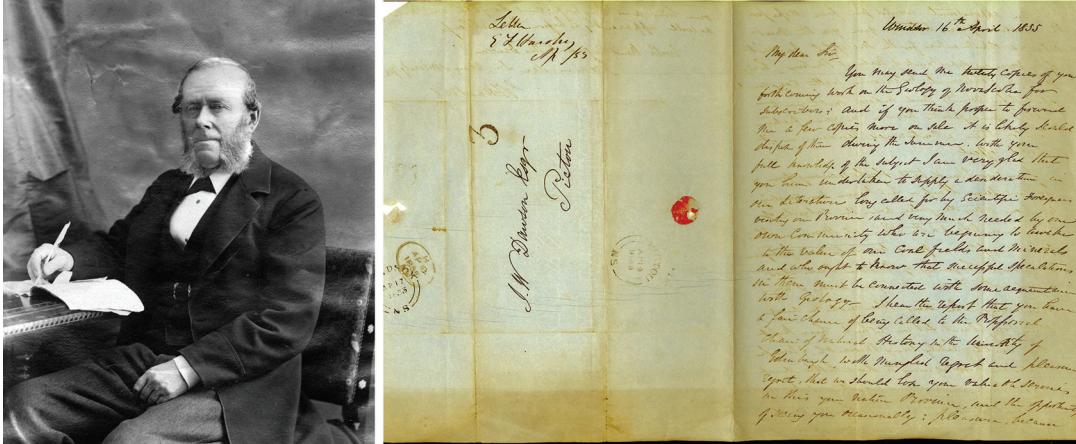 Letter
Ap /55
3
J. W. Dawson Esqr
Pictou
Windsor 16th April 1855
My dear Sir,
You may send me twenty copies of your
forthcoming work on the Geology of Nova Scotia for
subscribers; and if you think proper to forward
me a few copies more on sale it is likely I could
dispose of them during the summer. With your
full knowledge of the subject I am very glad that
you have undertaken to supply a desideratum in
our Literature long called for by Scientific Foreigners
visiting our Province and very much needed by our
own Community who are beginning to awake
to the value of our Coal fields and Minerals
and who ought to know that successful speculations
in them must be connected with some acquaintance
with Geology — I hear the report that you have
a fair chance of being called to the Proposed
Chair of Natural History in the University of
Edinburgh with mingled regret and pleasure
regret, that we should lose your valuable services
in this your native Province, and the opportunity
of seeing you occasionally; pleasure, because